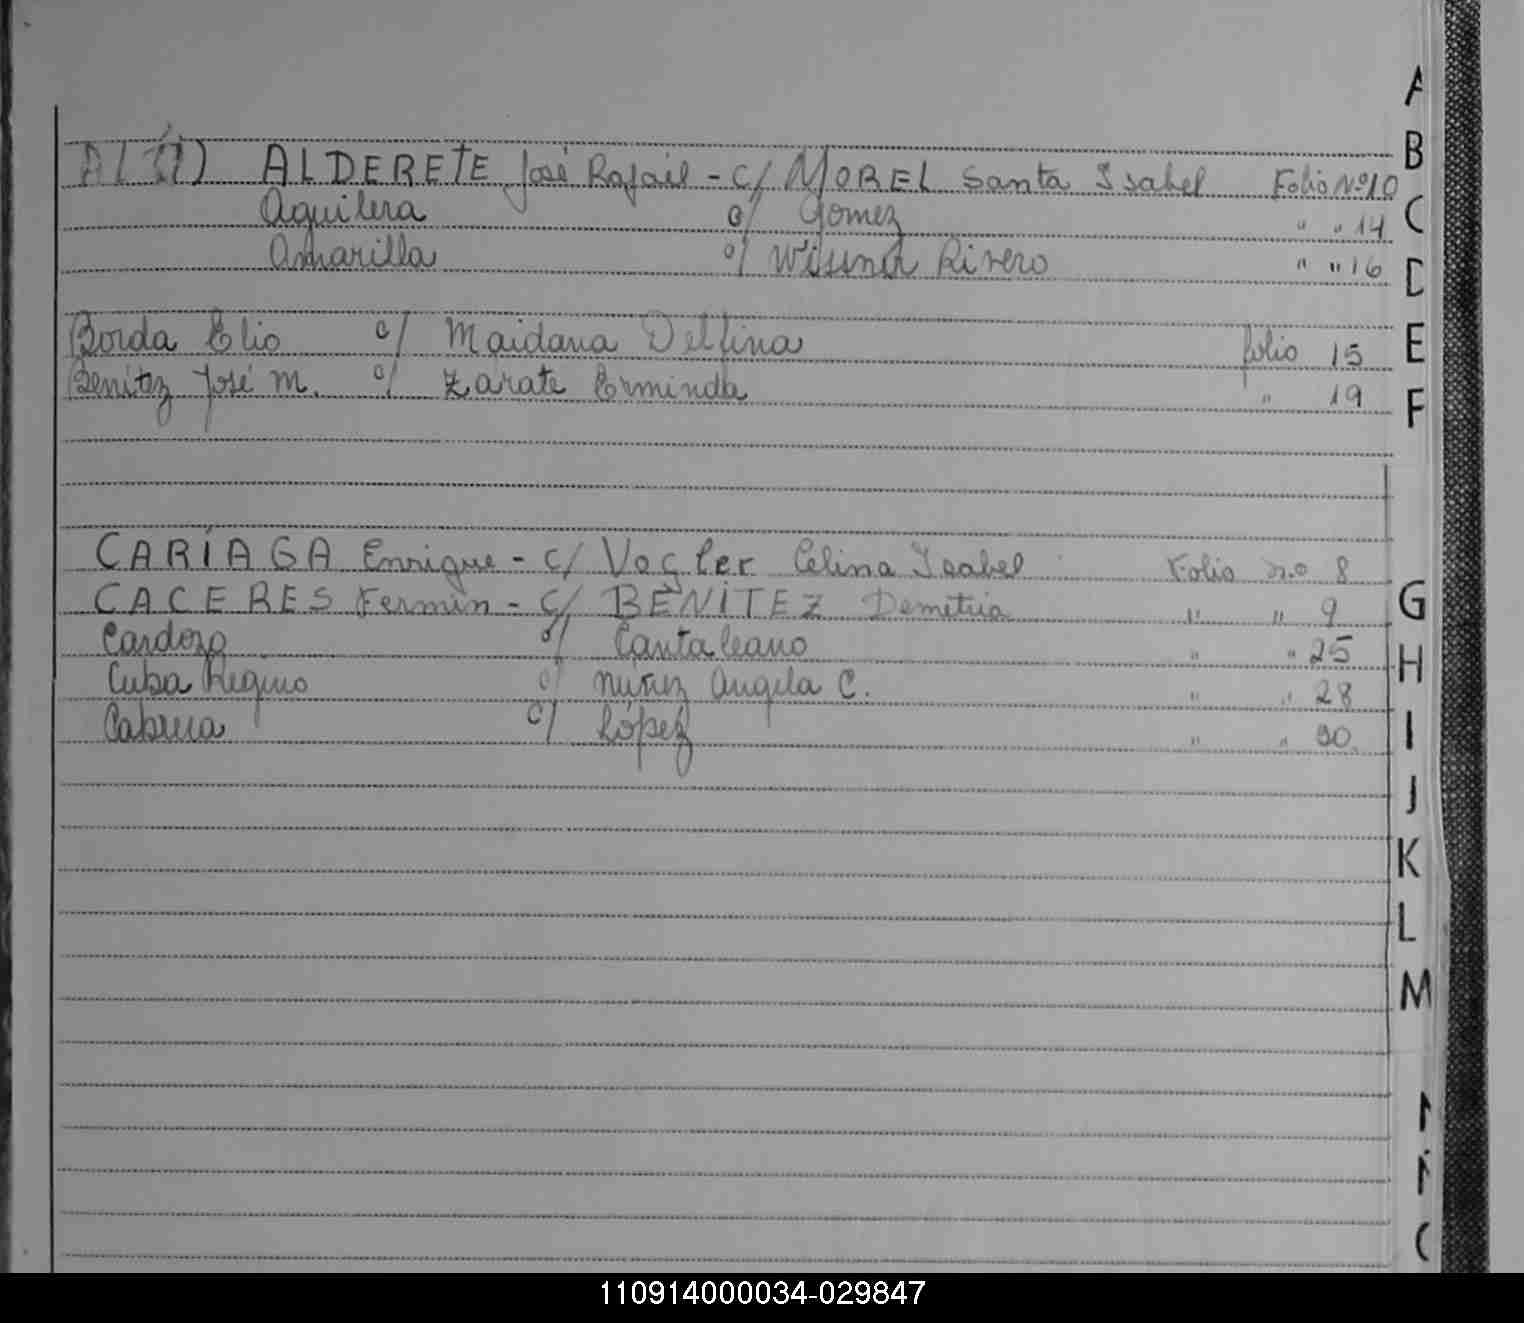 A
B
ALDERETE José Rafael - c/ MOREL Santa Isabel Folio Nº 10
C
Aguilera c/ Gomez " " 14
Amarilla c/ Rivero " " 16
D
Borda Elio c/ Maidana Delfina folio 15
E
Benitez José M. c/ Zarate Erminda " 19
F
CARÍAGA Enrique - c/ Vogler Celina Isabel Folio no 8
CACERES Fermin - c/ BENÍTEZ Demetria " " 9
G
Cardozo c/ Cantaleano " " 25
H
Cuba Regino c/ Nuñez Angela C. " " 28
Cabrera c/ López " " 30
I
J
K
L
M
110914000034-029847